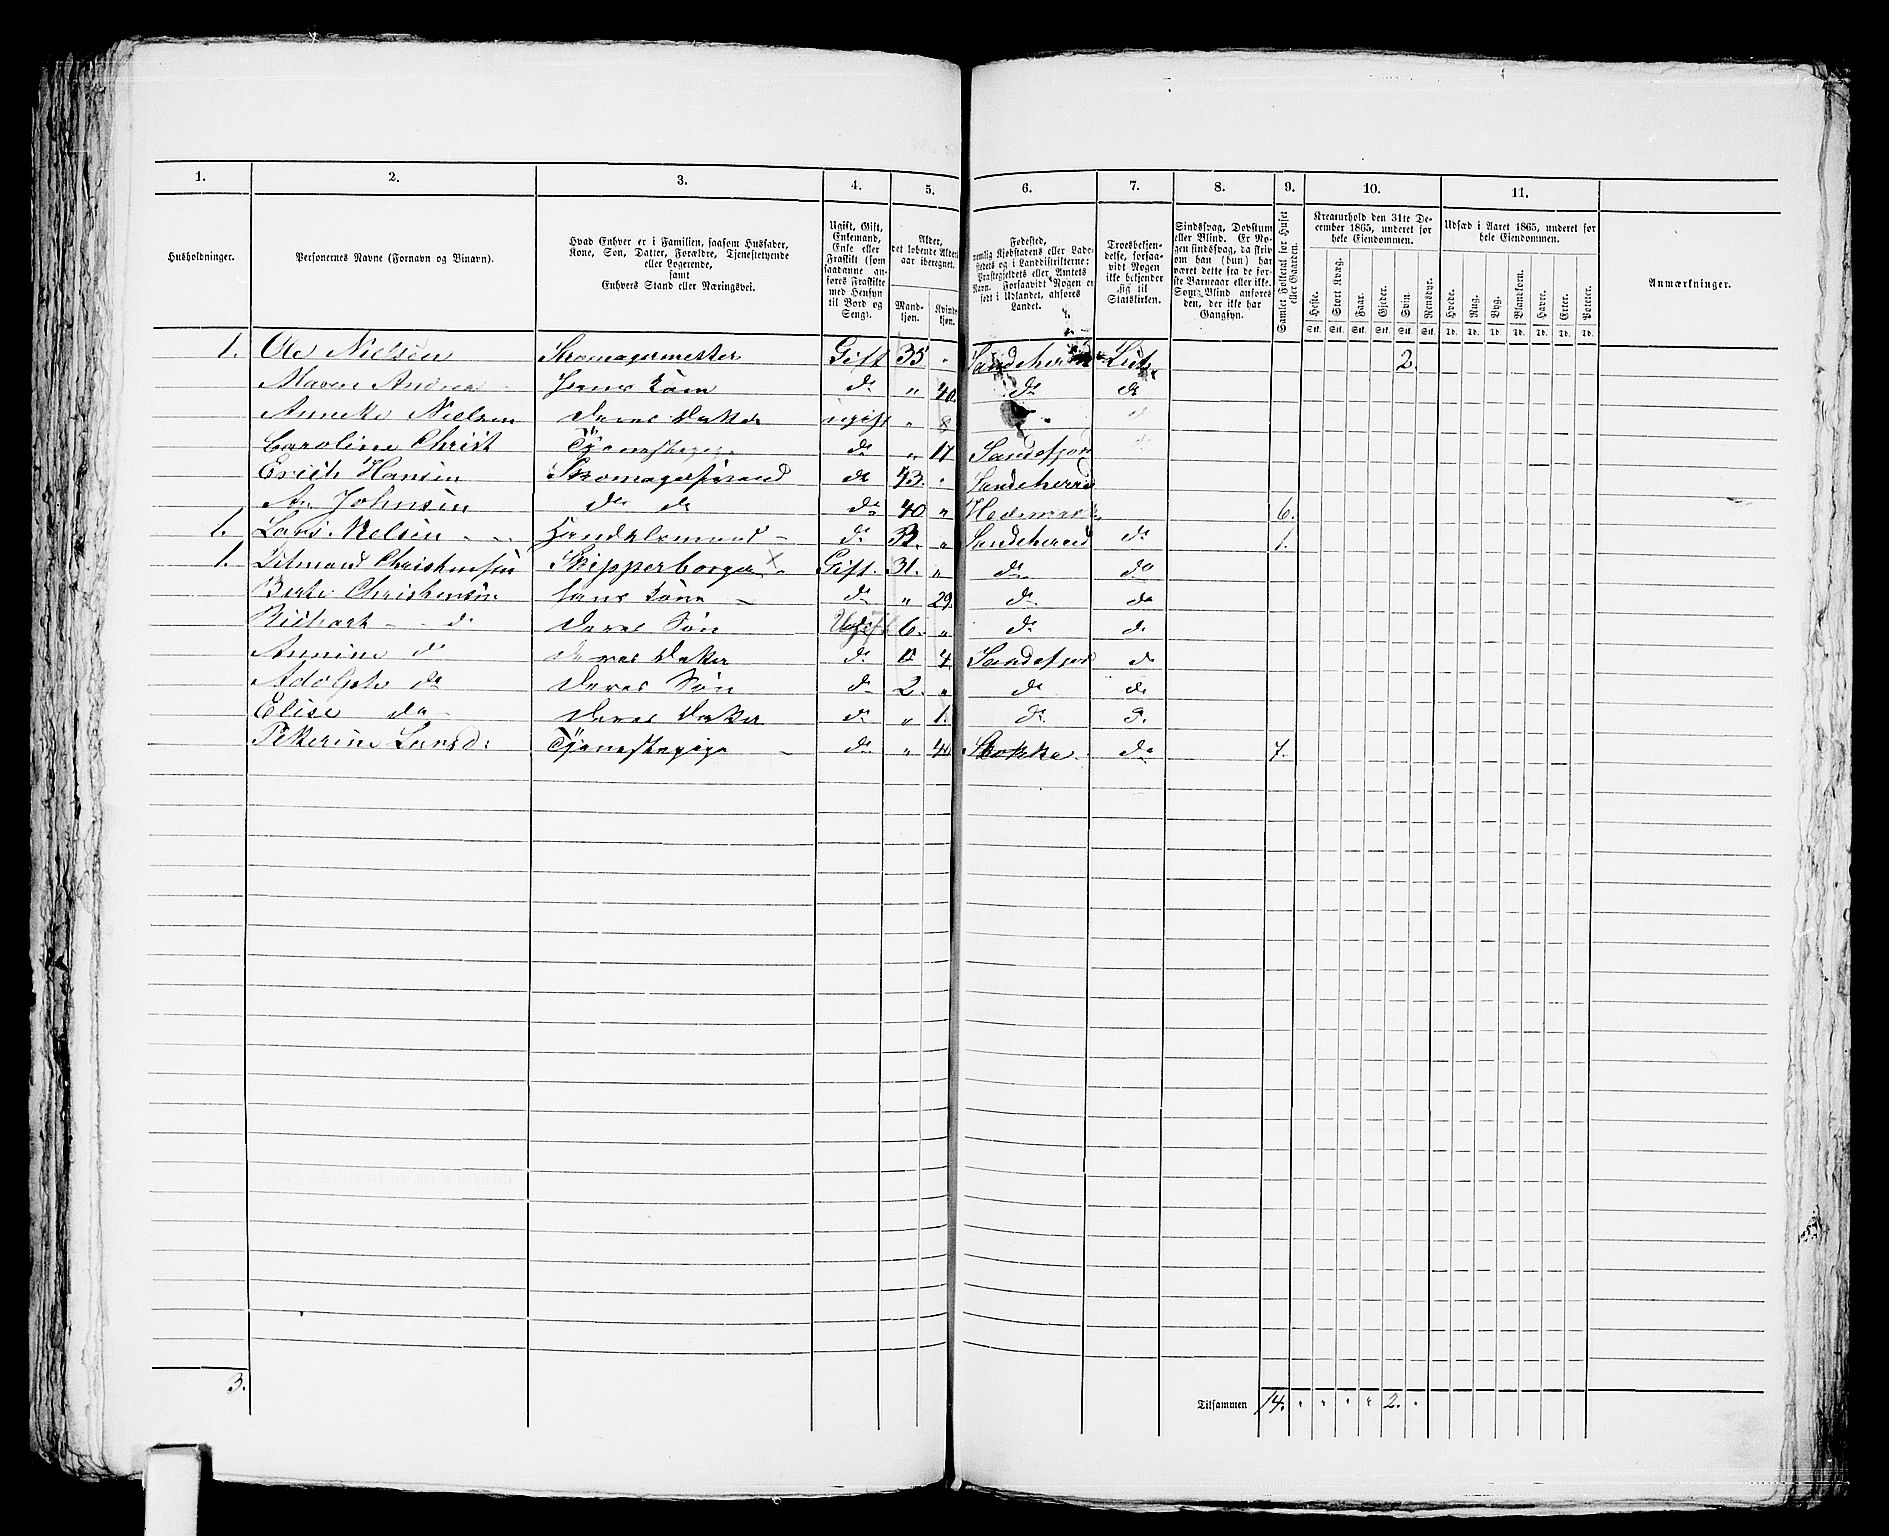 1. 2. 3. 4. 5. 6. 7. 8. 9. 10. 11.
Husholdninger.
Personernes Navne (Fornavn og Binavn).
Hvad Enhver er i Familien, saasom Husfader,
Kone, Søn, Datter, Forældre, Tjenestetyende
eller Logerende,
samt
Enhvers Stand eller Næringsvei.
Ugift, Gift,
Enkemand,
Enke eller
Fraskilt (som
saadanne an-
føres Fraskilte
med Hensyn
til Bord og
Seng).
Alder,
det løbende Alders-
aar iberegnet.
Mand-
kjøn.
Kvinde-
kjøn.
Fødested,
nemlig Kjøbstadens eller Lade-
stedets og i Landdistrikterne:
Præstegjeldets eller Amtets
Navn. Forsaavidt Nogen er
født i Udlandet, anføres
Landet.
Troesbekjen-
delse, forsaa-
vidt Nogen
ikke bekjender
sig til
Statskirken.
Sindssvag, Døvstum
eller Blind. Er No-
gen sindssvag, da skriv
om han (hun) har
været dette fra de før-
ste Barneaar eller ikke.
Som Blind anføres
den, der ikke har
Gangsyn.
Samlet Folketal for Huset
eller Gaarden.
Kreaturhold den 31te De-
cember 1865, underet for
hele Eiendommen.
Heste. Stort Kvæg. Faar. Gjeder. Svin. Rensdyr.
Stk. Stk. Stk. Stk. Stk. Stk.
Udsæd i Aaret 1865, underet for
hele Eiendommen.
Hvede. Rug. Byg. Blandkorn. Havre. Erter. Poteter.
Td. Td. Td. Td. Td. Td. Td.
Anmærkninger.
1. Ole Nielsen Skomagermester Gift 35 " Sandeherred 2.
Maren Andrea Kone do " 40. do do
Nielsen Deres Datter ugift " 8
Caroline Christ Tjenestepige do " 17 Sandefjord
Erich Hansen Skomagersvend do 43. " Sandeherred
Johnsen do do do 40 " Hedemark 6.
1. Lars Nelsen Handelsmand do " Sandeherred do 1.
1. Christensen Skipperborger x Gift. 31. " do do
Berte Christensen Hans Kone do " 29. do do
do Deres Søn Ugift 6. " do do
Annine do Deres Datter do 4 Sandefjord do
Adolph do Deres Søn do 2. " do do
Elise do Deres Datter do " 1. do do
Petterine Larsd: Tjenestepige do " 40 Stokke do 7.
3. Tilsammen 14. " " " " 2. "